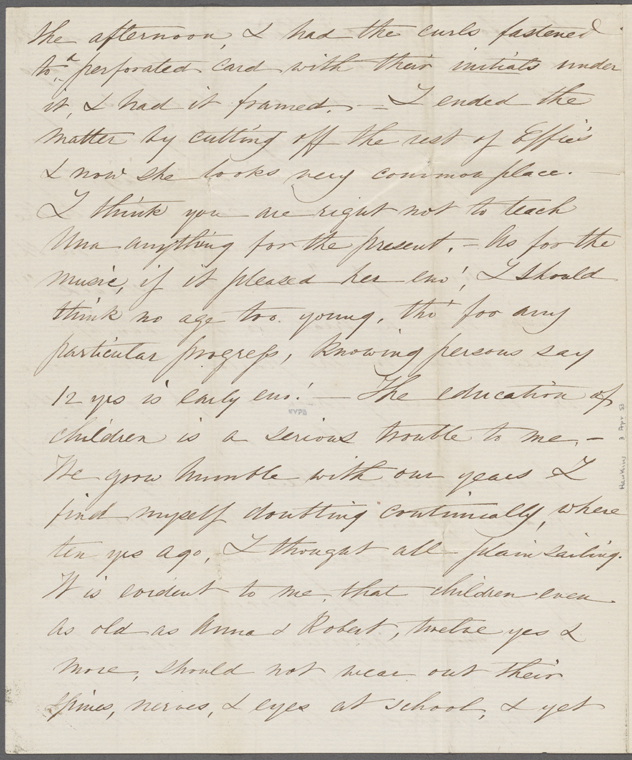 the afternoon, & had the curls fastened
to a perforated card with their initials under
it, & had it framed. — I ended the
matter by cutting off the rest of Effie's
& now she looks very common place. —
I think you are right not to teach
Una anything for the present. — As for the
music, if it pleased her eno', I should
think no age too young, tho' for any
particular progress, knowing persons say
12 yrs is early eno'! — The education of
children is a serious trouble to me. —
We grow humble with our years & I
find myself doubting continually, where
ten yrs ago, I thought all plain sailing.
It is evident to me that children even
as old as Anna & Robert, twelve yrs &
more, should not wear out their
spines, nerves, & eyes at school, & yet